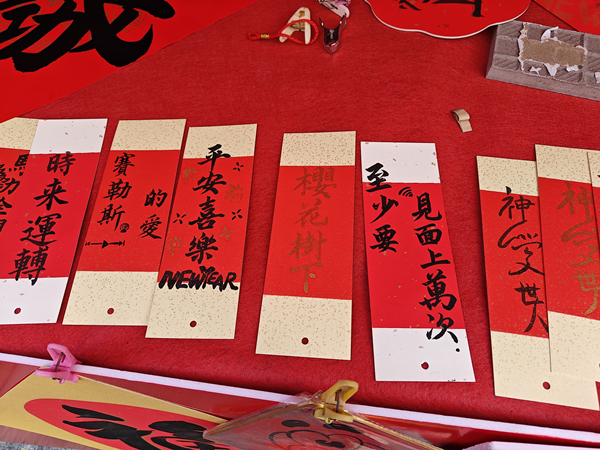 誠
時來運轉
賽勒斯
的愛
平安喜樂
NEWYEAR
櫻花樹下
至少要
見面上萬次
神愛世人
神愛世